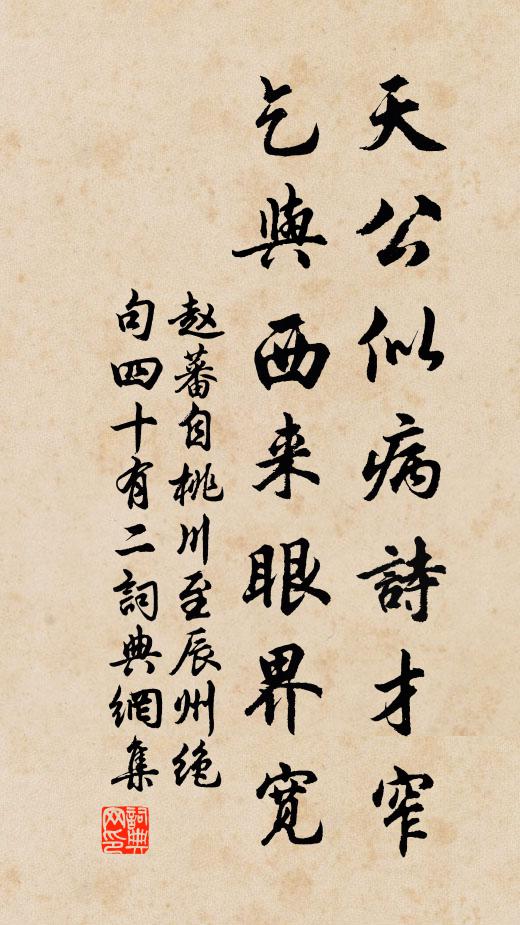 天公似病詩才窄
乞與西来眼界寬
赵蕃自桃川至辰州绝
句四十有二詞典網集
詞典网印